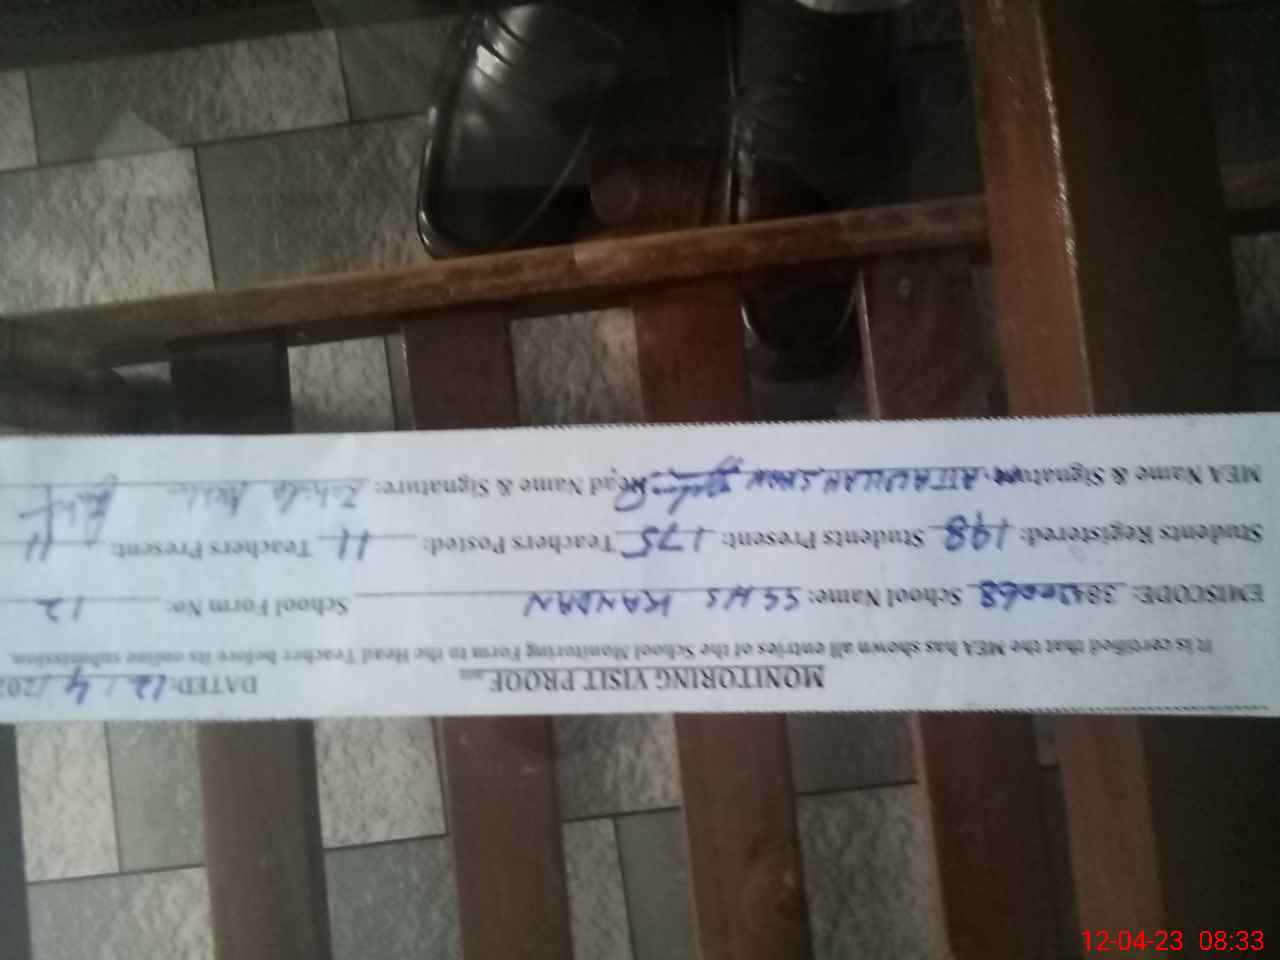 MONITORING VISIT PROOF DATED: 12/4/202
It is certified that the MEA has shown all entries of the School Monitoring Form to the Head Teacher before its online submission.
EMISCODE: School Name: SSHS KANDAN School Form No: 12
Students Registered: 198 Students Present: 175 Teachers Posted: 11 Teachers Present: 11
MEA Name & Signature: Head Name & Signature:
12-04-23 08:33